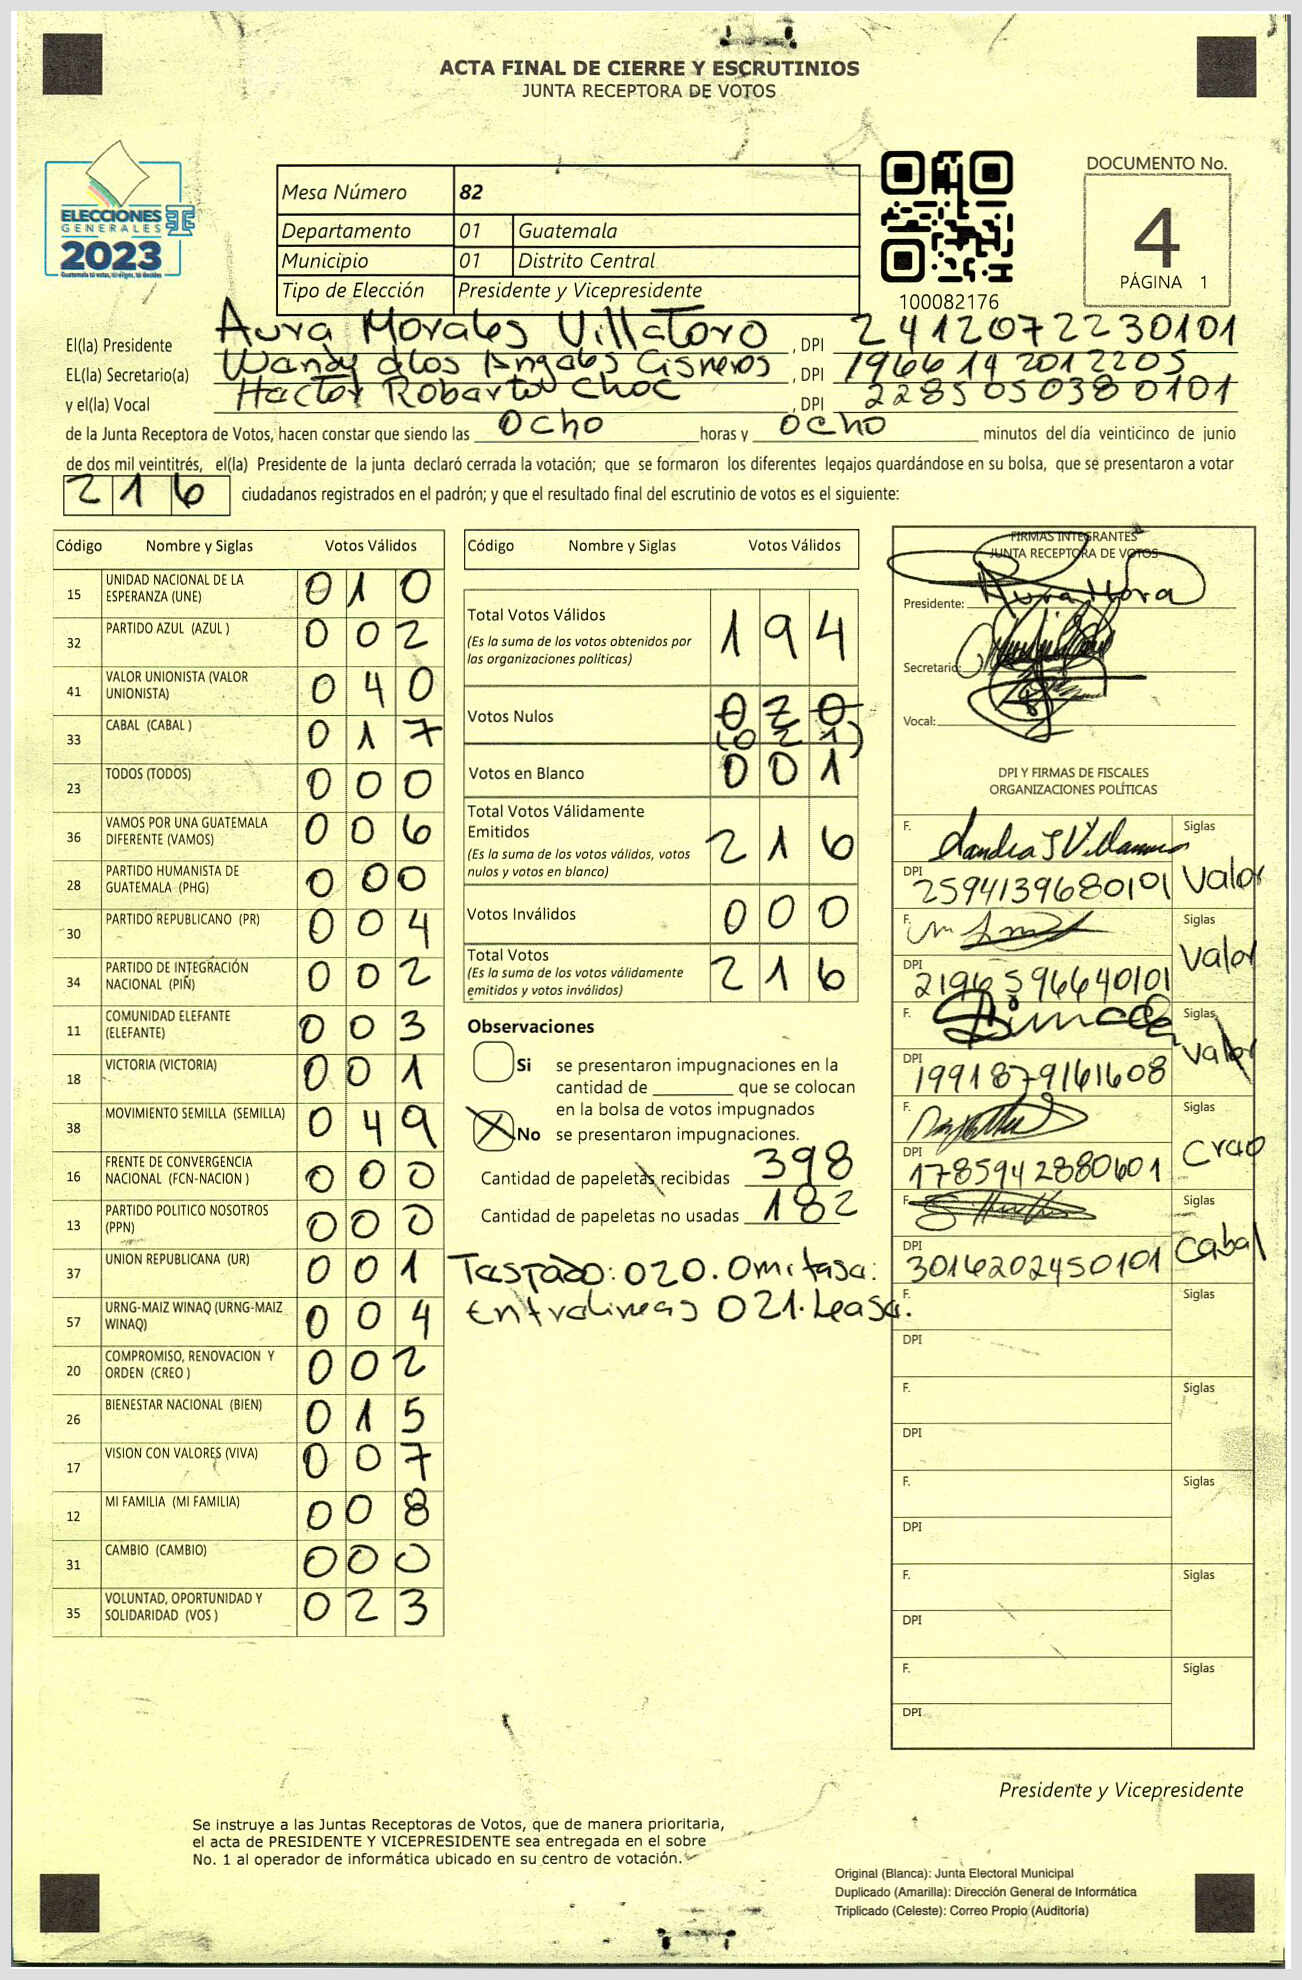 ACTA FINAL DE CIERRE Y ESCRUTINIOS
JUNTA RECEPTORA DE VOTOS
ELECCIONES
GENERALES
2023
Mesa Número 82
Departamento 01 Guatemala
Municipio 01 Distrito Central
Tipo de Elección Presidente y Vicepresidente
100082176
DOCUMENTO No.
4
PÁGINA 1
El(la) Presidente Aura Morales Villatoro , DPI 2412072230101
EL(la) Secretario(a) Wandy dlos Angales Cisneros , DPI 1966142012205
y el(la) Vocal Hactor Robarto Choc , DPI 2285050380101
de la Junta Receptora de Votos, hacen constar que siendo las ocho horas y ocho minutos del día veinticinco de junio
de dos mil veintitrés, el(la) Presidente de la junta declaró cerrada la votación; que se formaron los diferentes legajos guardándose en su bolsa, que se presentaron a votar
216 ciudadanos registrados en el padrón; y que el resultado final del escrutinio de votos es el siguiente:
Código Nombre y Siglas Votos Válidos
15 UNIDAD NACIONAL DE LA ESPERANZA (UNE) 010
32 PARTIDO AZUL (AZUL ) 002
41 VALOR UNIONISTA (VALOR UNIONISTA) 040
33 CABAL (CABAL ) 017
23 TODOS (TODOS) 000
36 VAMOS POR UNA GUATEMALA DIFERENTE (VAMOS) 006
28 PARTIDO HUMANISTA DE GUATEMALA (PHG) 000
30 PARTIDO REPUBLICANO (PR) 004
34 PARTIDO DE INTEGRACIÓN NACIONAL (PIN) 002
11 COMUNIDAD ELEFANTE (ELEFANTE) 003
18 VICTORIA (VICTORIA) 001
38 MOVIMIENTO SEMILLA (SEMILLA) 049
16 FRENTE DE CONVERGENCIA NACIONAL (FCN-NACION ) 000
13 PARTIDO POLITICO NOSOTROS (PPN) 000
37 UNION REPUBLICANA (UR) 001
57 URNG-MAIZ WINAQ (URNG-MAIZ WINAQ) 004
20 COMPROMISO, RENOVACION Y ORDEN (CREO ) 002
26 BIENESTAR NACIONAL (BIEN) 015
17 VISION CON VALORES (VIVA) 007
12 MI FAMILIA (MI FAMILIA) 008
31 CAMBIO (CAMBIO) 000
35 VOLUNTAD, OPORTUNIDAD Y SOLIDARIDAD (VOS ) 023
Código Nombre y Siglas Votos Válidos
Total Votos Válidos 194
(Es la suma de los votos obtenidos por
las organizaciones políticas)
Votos Nulos 020
(021)
Votos en Blanco 001
Total Votos Válidamente
Emitidos 216
(Es la suma de los votos válidos, votos
nulos y votos en blanco)
Votos Inválidos 000
Total Votos 216
(Es la suma de los votos válidamente
emitidos y votos inválidos)
Observaciones
Si se presentaron impugnaciones en la
cantidad de ________ que se colocan
en la bolsa de votos impugnados
No se presentaron impugnaciones.
Cantidad de papeletas recibidas 398
Cantidad de papeletas no usadas 182
Tastado: 020. Omitasa:
Entralineas 021. Leasa.
FIRMAS INTEGRANTES
JUNTA RECEPTORA DE VOTOS
Presidente:
Secretario:
Vocal:
DPI Y FIRMAS DE FISCALES
ORGANIZACIONES POLÍTICAS
F. Siglas
DPI 2594139680101 Valor
F. Siglas
DPI 2196596640101 Valor
F. Siglas
DPI 1991879161608 Valor
F. Siglas
DPI 1785942880601 Crao
F. Siglas
DPI 3016202450101 Cabal
F. Siglas
DPI
F. Siglas
DPI
F. Siglas
DPI
F. Siglas
DPI
F. Siglas
DPI
Presidente y Vicepresidente
Se instruye a las Juntas Receptoras de Votos, que de manera prioritaria,
el acta de PRESIDENTE Y VICEPRESIDENTE sea entregada en el sobre
No. 1 al operador de informática ubicado en su centro de votación.
Original (Blanca): Junta Electoral Municipal
Duplicado (Amarilla): Dirección General de Informática
Triplicado (Celeste): Correo Propio (Auditoría)